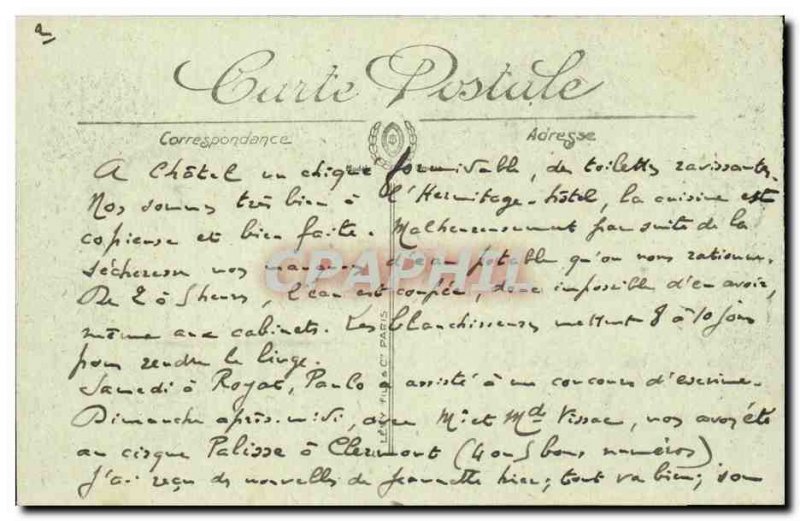 2
Carte Postale
Correspondance
Adresse
A Châtel un chique formidable, des toilettes ravissantes.
Nos sommes très bien à l'Hermitage-hôtel, la cuisine est
copieuse et bien faite. Malheureusement par suite de la
sécheresse nos manquons d'eau potable qu'on nous rationne.
De 2 à 5 heures, l'eau est coupée, donc impossible d'en avoir,
même aux cabinets. Les blanchisseuses mettent 8 à 10 jours
pour rendre le linge.
Samedi à Royat, Paulo a assisté à un concours d'escrime.
Dimanche après-midi, avec Mr et Md Vissac, nos avons été
au cirque Palisse à Clermont (4 ou 5 bons numéros)
J'ai reçu des nouvelles de Jeannette hier; tout va bien; son
LEVY FILS & Cie PARIS
CPAPHIL